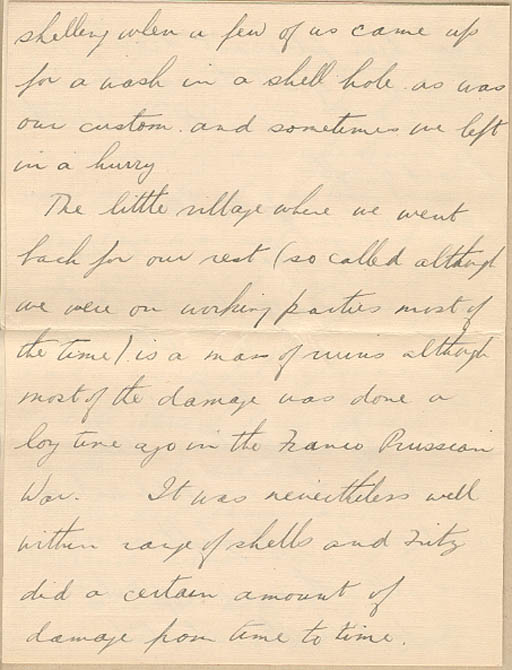 shelling when a few of us came up
for a wash in a shell hole as was
our custom. and sometimes we left
in a hurry
The little village where we went
back for our rest (so called although
we were on working parties most of
the time) is a mass of ruins although
most of the damage was done a
long time ago in the Franco Prussian
War. It was nevertheless well
within range of shells and Fritz
did a certain amount of
damage from time to time.